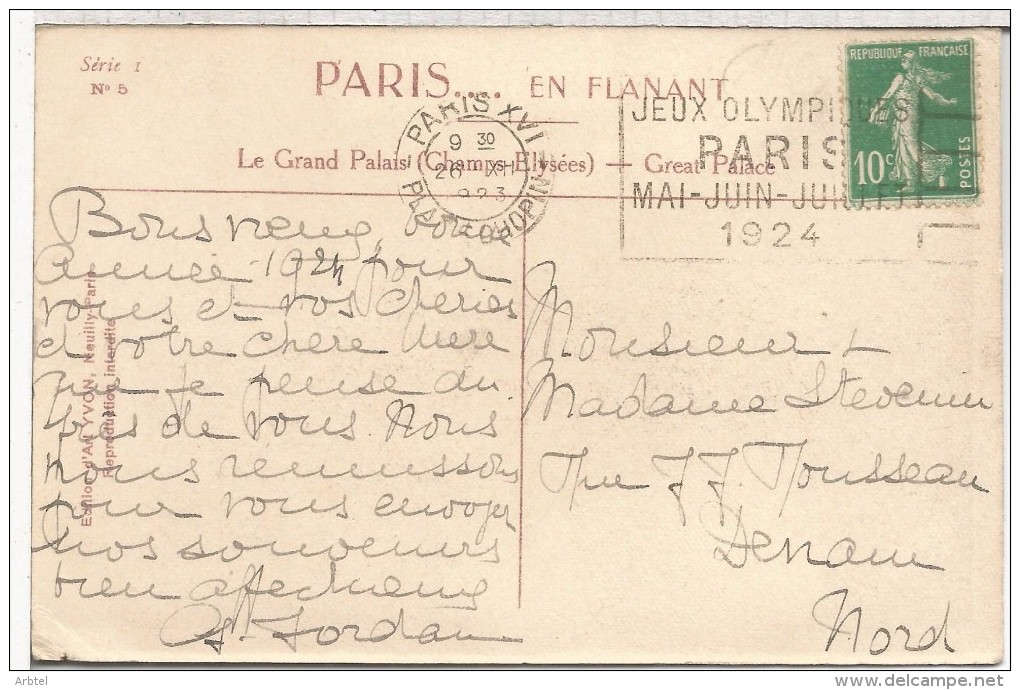 Série 1
N° 5
PARIS.... EN FLANANT
Le Grand Palais (Champs-Elysées) — Great Palace
PARIS XVI
9 30
26 XII
1923
PLACE CHOPIN
JEUX OLYMPIQUES
PARIS
MAI-JUIN-JUILLET
1924
REPUBLIQUE FRANÇAISE
10c
POSTES
Edition d'Art YVON, Neuilly-Paris
Reproduction interdite
Bons vœux, bonne
année 1924 pour
vous et vos chéries
et votre chère Mère
que je pense du
près de vous. Nous
nous réunissons
pour vous envoyer
nos souvenirs
bien affectueux
G. Jordan
Monsieur &
Madame Stevenin
Rue J J Rousseau
Denain
Nord
Arbtel
delcampe.net